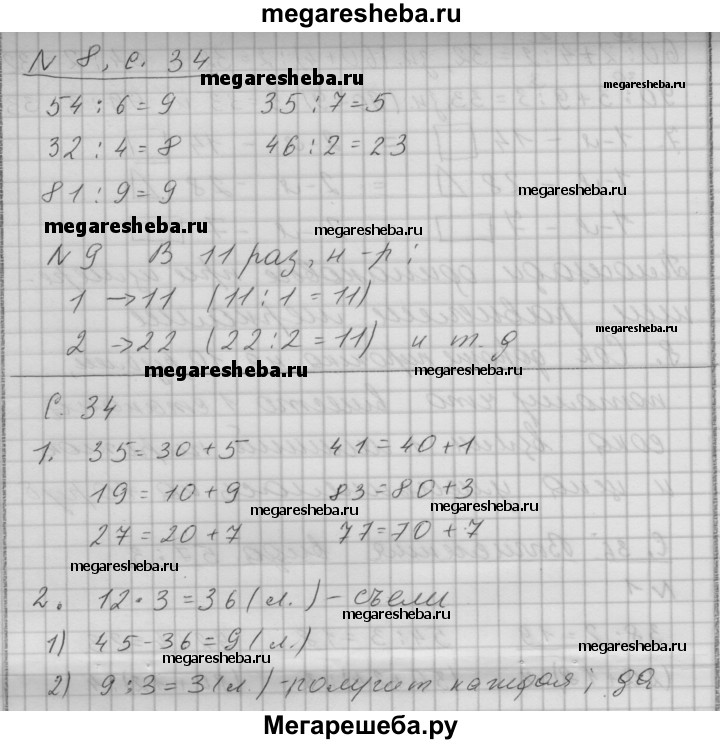 megaresheba.ru
N 8, с. 34
megaresheba.ru
megaresheba.ru
54 : 6 = 9 35 : 7 = 5
32 : 4 = 8 46 : 2 = 23
81 : 9 = 9
megaresheba.ru
megaresheba.ru
megaresheba.ru
N 9 В 11 раз, н-р:
1 → 11 (11 : 1 = 11)
2 → 22 (22 : 2 = 11) и т. д
megaresheba.ru
megaresheba.ru
megaresheba.ru
С. 34
1. 35 = 30 + 5 41 = 40 + 1
19 = 10 + 9 83 = 80 + 3
megaresheba.ru
megaresheba.ru
27 = 20 + 7 77 = 70 + 7
megaresheba.ru
2. 12 · 3 = 36 (л.) - съели
megaresheba.ru
1) 45 - 36 = 9 (л.)
megaresheba.ru
megaresheba.ru
2) 9 : 3 = 3 (л.) - получит каждая; да
Мегарешеба.ру